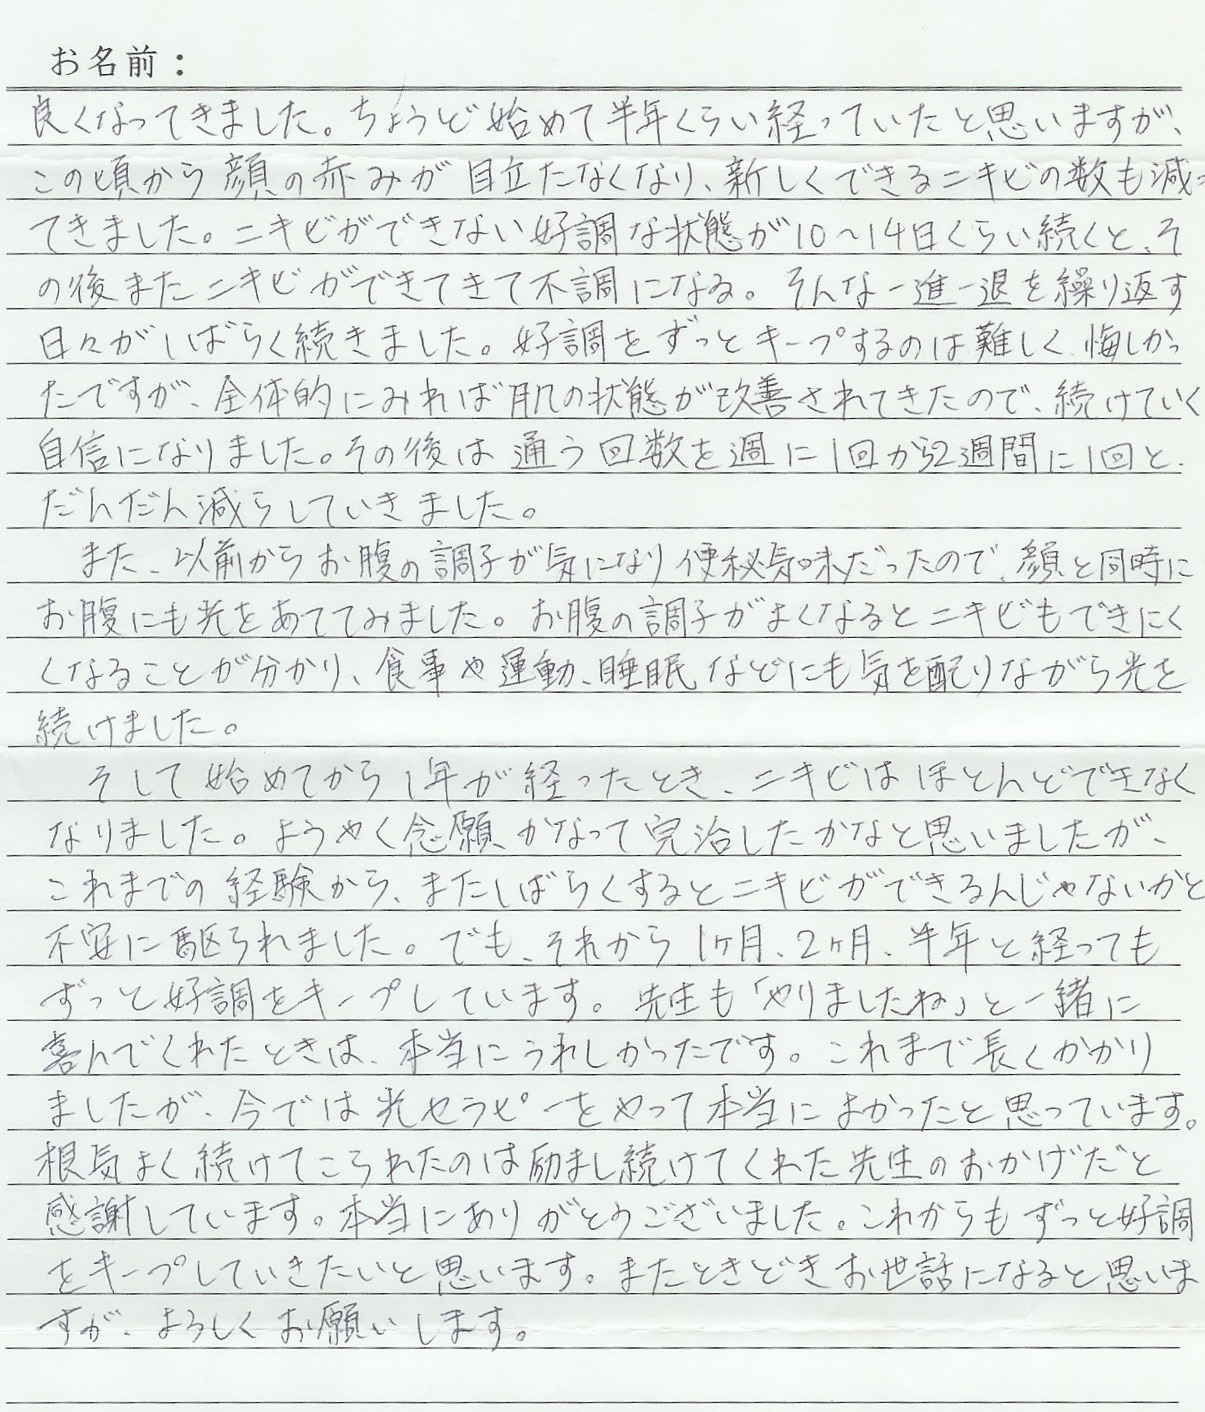 お名前：
良くなってきました。ちょうど始めて半年くらい経っていたと思いますが、
この頃から顔の赤みが目立たなくなり、新しくできるニキビの数も減っ
てきました。ニキビができない好調な状態が10～14日くらい続くと、そ
の後またニキビができてきて不調になる。そんな一進一退を繰り返す
日々がしばらく続きました。好調をずっとキープするのは難しく、悔しかっ
たですが、全体的にみれば肌の状態が改善されてきたので、続けていく
自信になりました。その後は通う回数を週に1回から2週間に1回と、
だんだん減らしていきました。
また、以前からお腹の調子が気になり便秘気味だったので、顔と同時に
お腹にも光をあててみました。お腹の調子がよくなるとニキビもできにく
くなることが分かり、食事や運動、睡眠などにも気を配りながら光を
続けました。
そして始めてから1年が経ったとき、ニキビはほとんどできなく
なりました。ようやく念願かなって完治したかなと思いましたが、
これまでの経験から、またしばらくするとニキビができるんじゃないかと
不安に駆られました。でも、それから1ヶ月、2ヶ月、半年と経っても
ずっと好調をキープしています。先生も「やりましたね」と一緒に
喜んでくれたときは、本当にうれしかったです。これまで長くかかり
ましたが、今では光セラピーをやって本当によかったと思っています。
根気よく続けてこられたのは励まし続けてくれた先生のおかげだと
感謝しています。本当にありがとうございました。これからもずっと好調
をキープしていきたいと思います。またときどきお世話になると思いま
すが、よろしくお願いします。